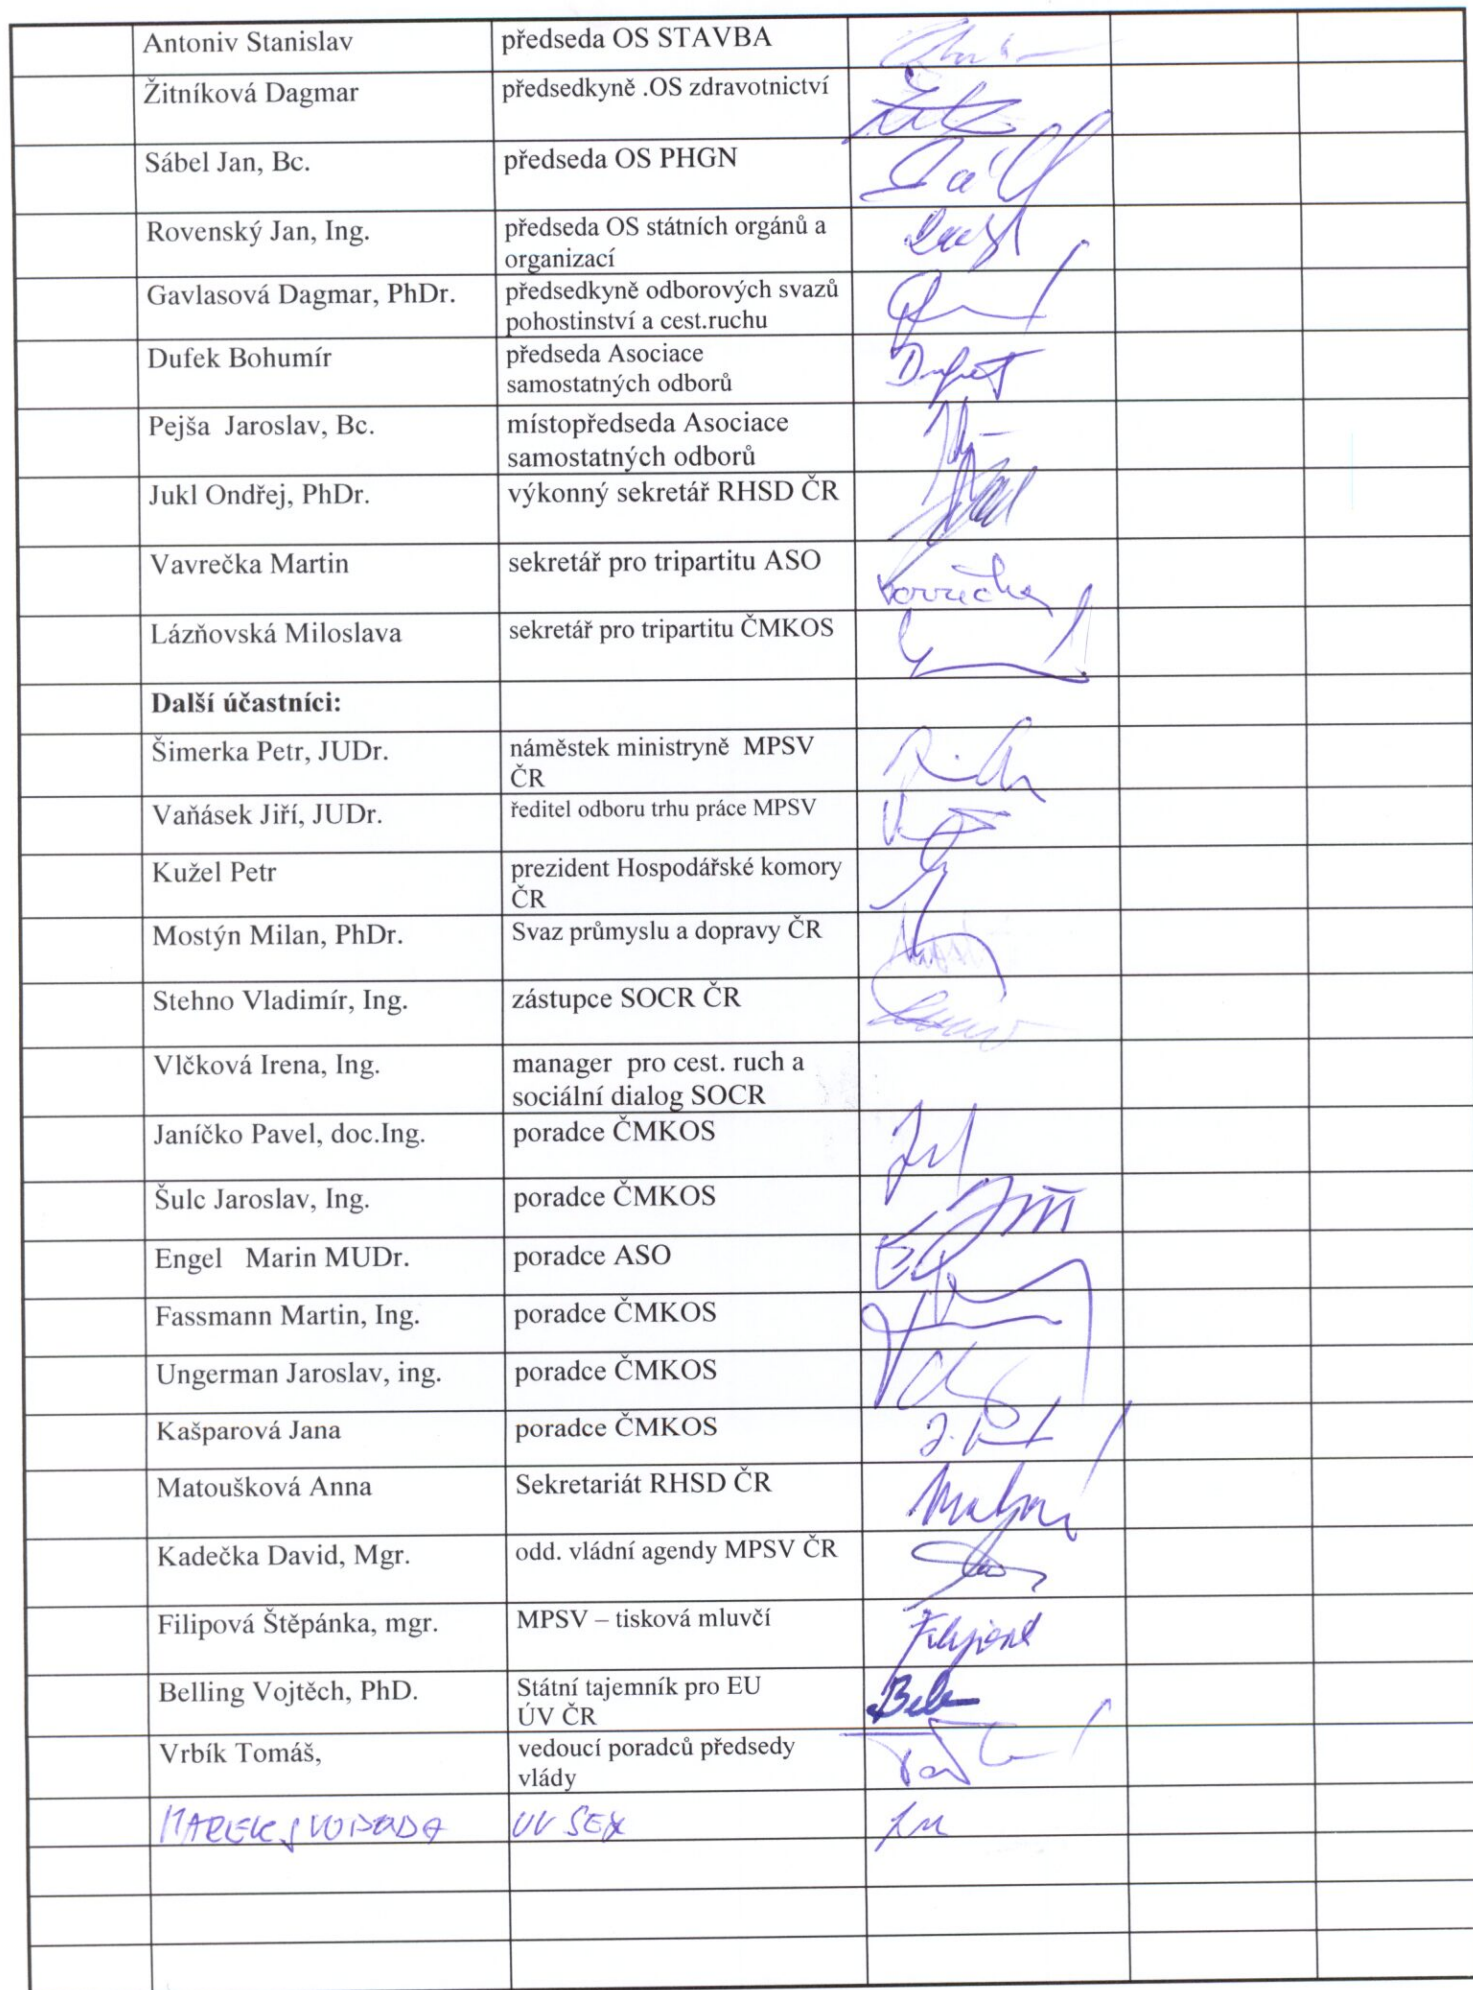 Antoniv Stanislav předseda OS STAVBA
Žitníková Dagmar předsedkyně .OS zdravotnictví
Sábel Jan, Bc. předseda OS PHGN
Rovenský Jan, Ing. předseda OS státních orgánů a
organizací
Gavlasová Dagmar, PhDr. předsedkyně odborových svazů
pohostinství a cest.ruchu
Dufek Bohumír předseda Asociace
samostatných odborů
Pejša Jaroslav, Bc. místopředseda Asociace
samostatných odborů
Jukl Ondřej, PhDr. výkonný sekretář RHSD ČR
Vavrečka Martin sekretář pro tripartitu ASO
Lázňovská Miloslava sekretář pro tripartitu ČMKOS
Další účastníci:
Šimerka Petr, JUDr. náměstek ministryně MPSV
ČR
Vaňásek Jiří, JUDr. ředitel odboru trhu práce MPSV
Kužel Petr prezident Hospodářské komory
ČR
Mostýn Milan, PhDr. Svaz průmyslu a dopravy ČR
Stehno Vladimír, Ing. zástupce SOCR ČR
Vlčková Irena, Ing. manager pro cest. ruch a
sociální dialog SOCR
Janíčko Pavel, doc.Ing. poradce ČMKOS
Šulc Jaroslav, Ing. poradce ČMKOS
Engel Marin MUDr. poradce ASO
Fassmann Martin, Ing. poradce ČMKOS
Ungerman Jaroslav, ing. poradce ČMKOS
Kašparová Jana poradce ČMKOS
Matoušková Anna Sekretariát RHSD ČR
Kadečka David, Mgr. odd. vládní agendy MPSV ČR
Filipová Štěpánka, mgr. MPSV – tisková mluvčí
Belling Vojtěch, PhD. Státní tajemník pro EU
ÚV ČR
Vrbík Tomáš, vedoucí poradců předsedy
vlády
MAREK SVOBODA